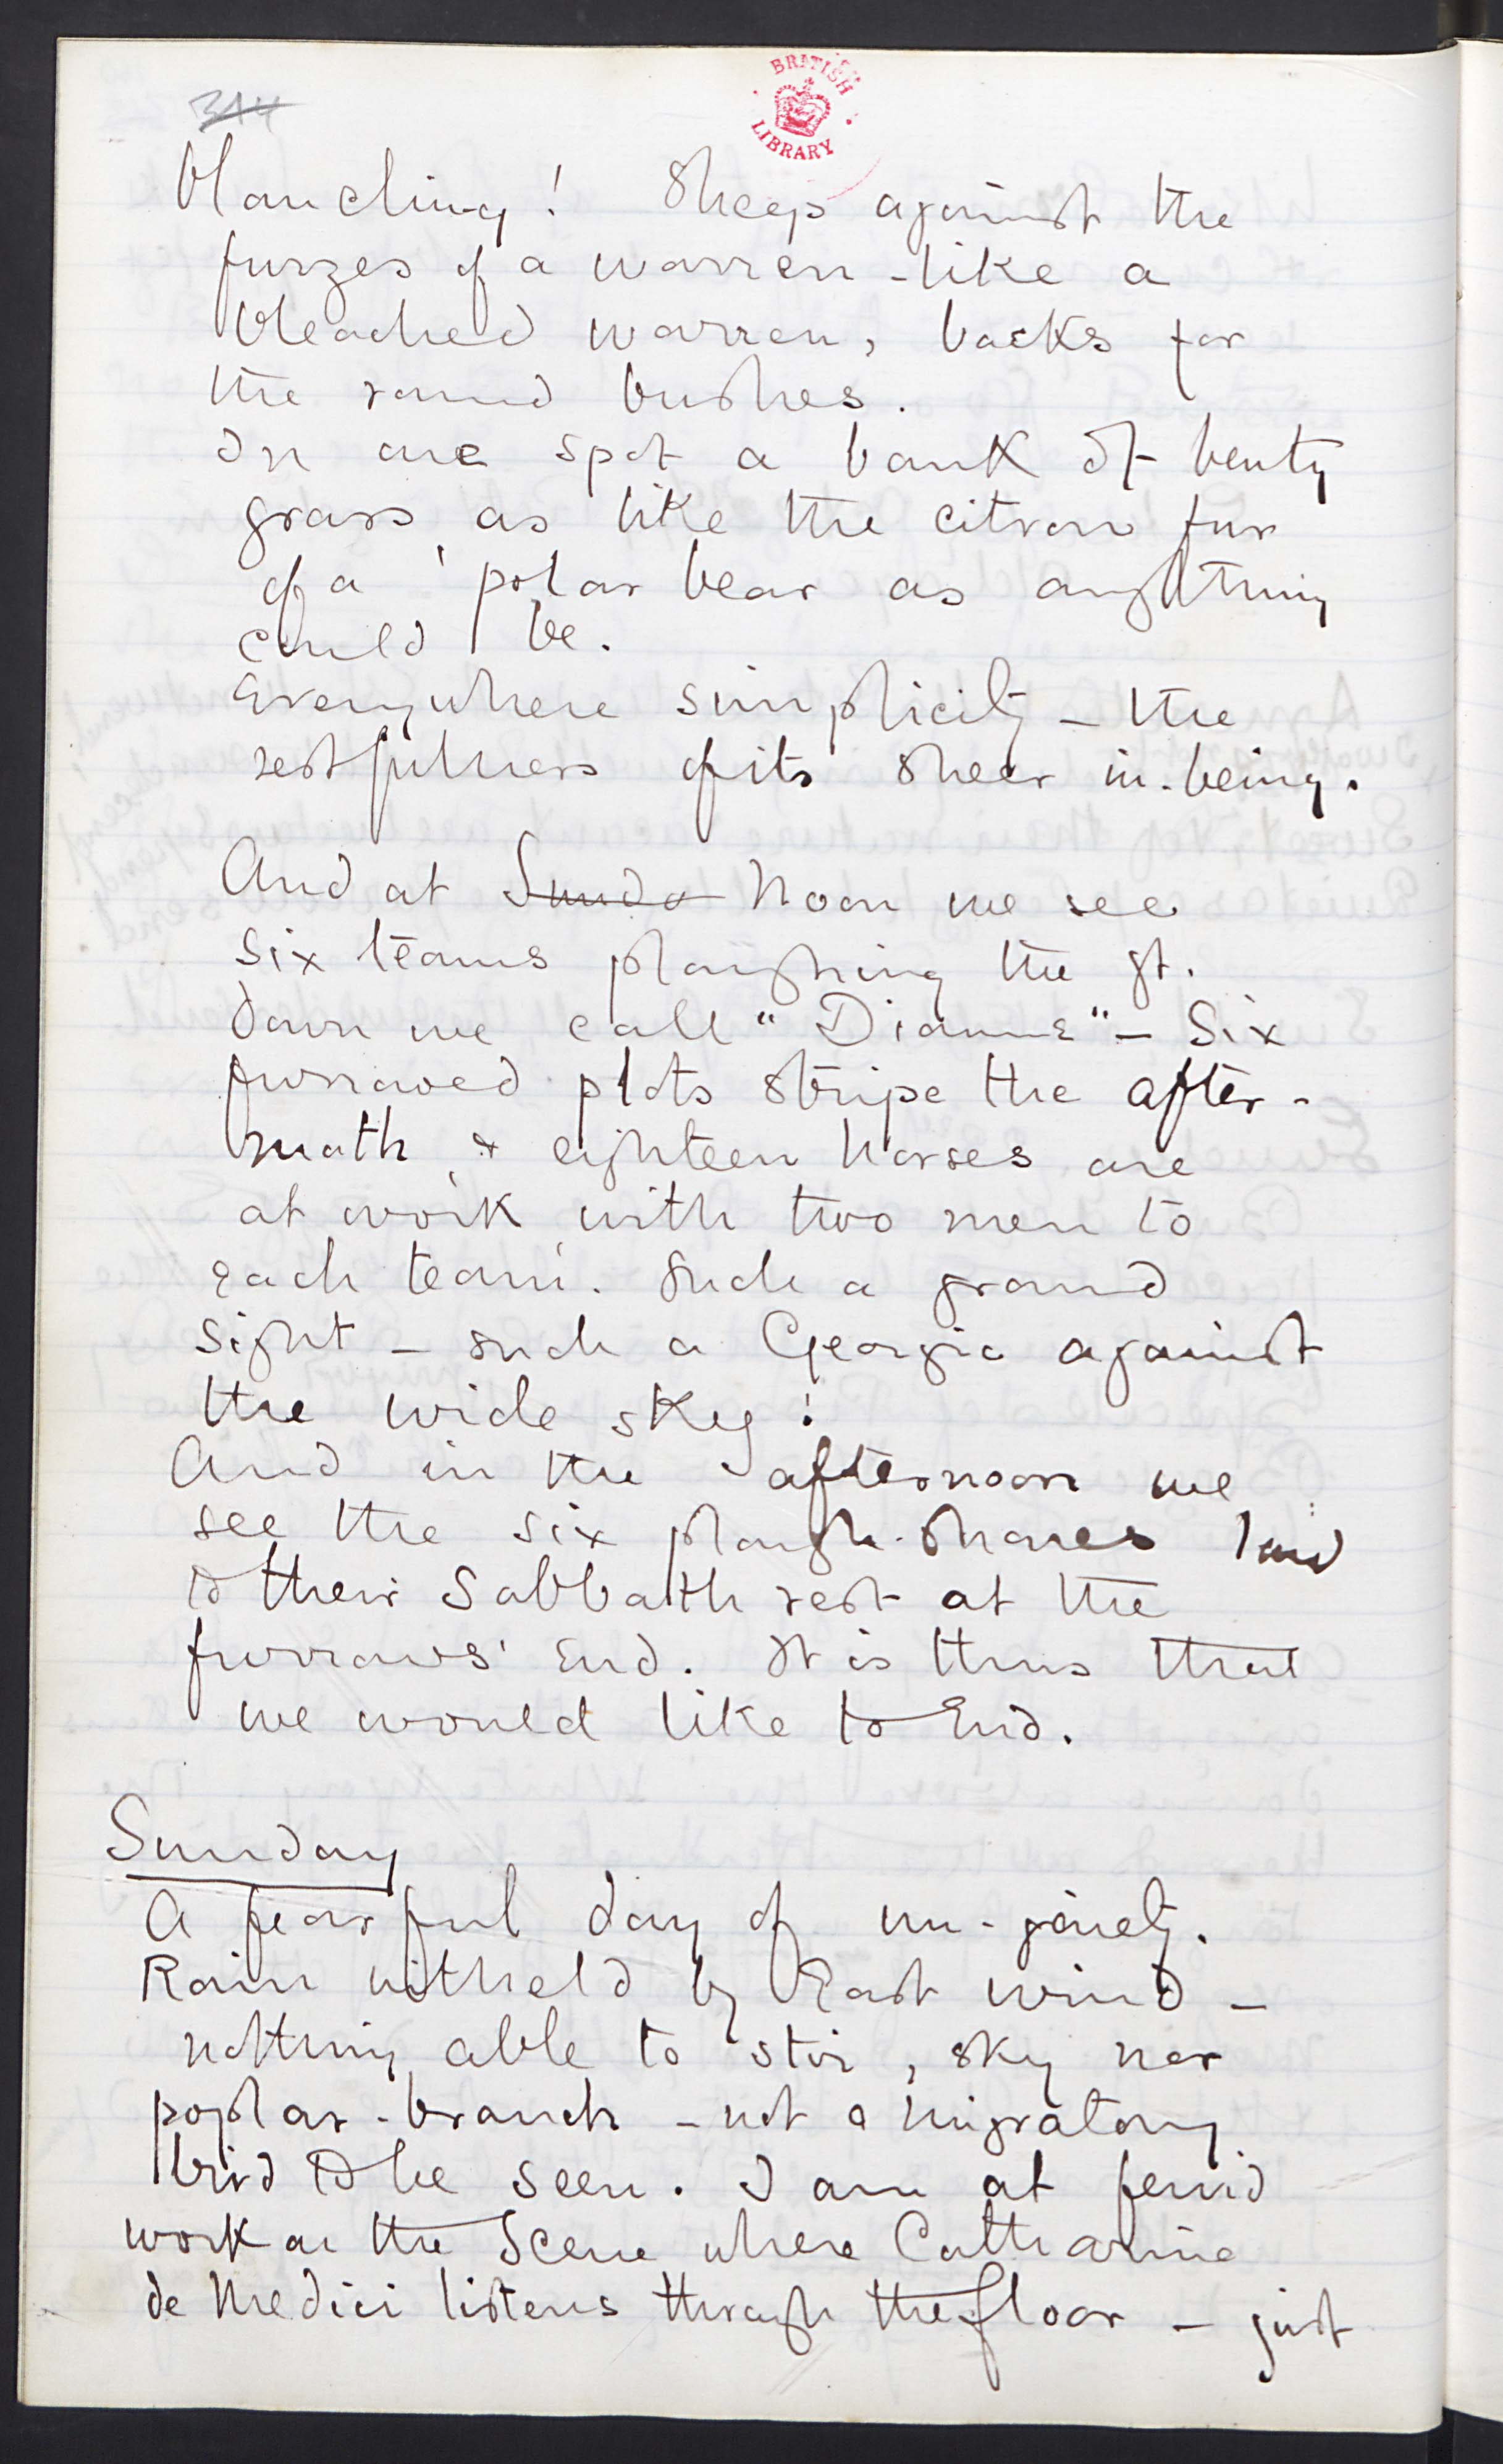 344
BRITISH
LIBRARY
blanching! Sheep against the
furzes of a warren - like a
bleached warren, backs for
the round bushes.
In one spot a bank of benty
grass as like the citron fur
of a polar bear as anything
could be.
Everywhere simplicity - the
restfulness of its sheer in-being.
And at Sunda Noon we see
six teams ploughing the gt.
down we call "Dianns" - Six
furrowed plots stripe the after-
math & eighteen horses are
at work with two men to
each team. Such a grand
sight - such a Georgic against
the wide sky!
And in the afternoon we
see the six plough-shares laid
to their Sabbath rest at the
furrows' end. It is thus that
we would like to end.
Sunday
A fearful day of un-gaiety.
Rain witheld by East wind -
nothing able to stir, sky nor
poplar-branch - not a migratory
bird to be seen. I am at fervid
work on the Scene where Catharine
de Medici listens through the floor - just